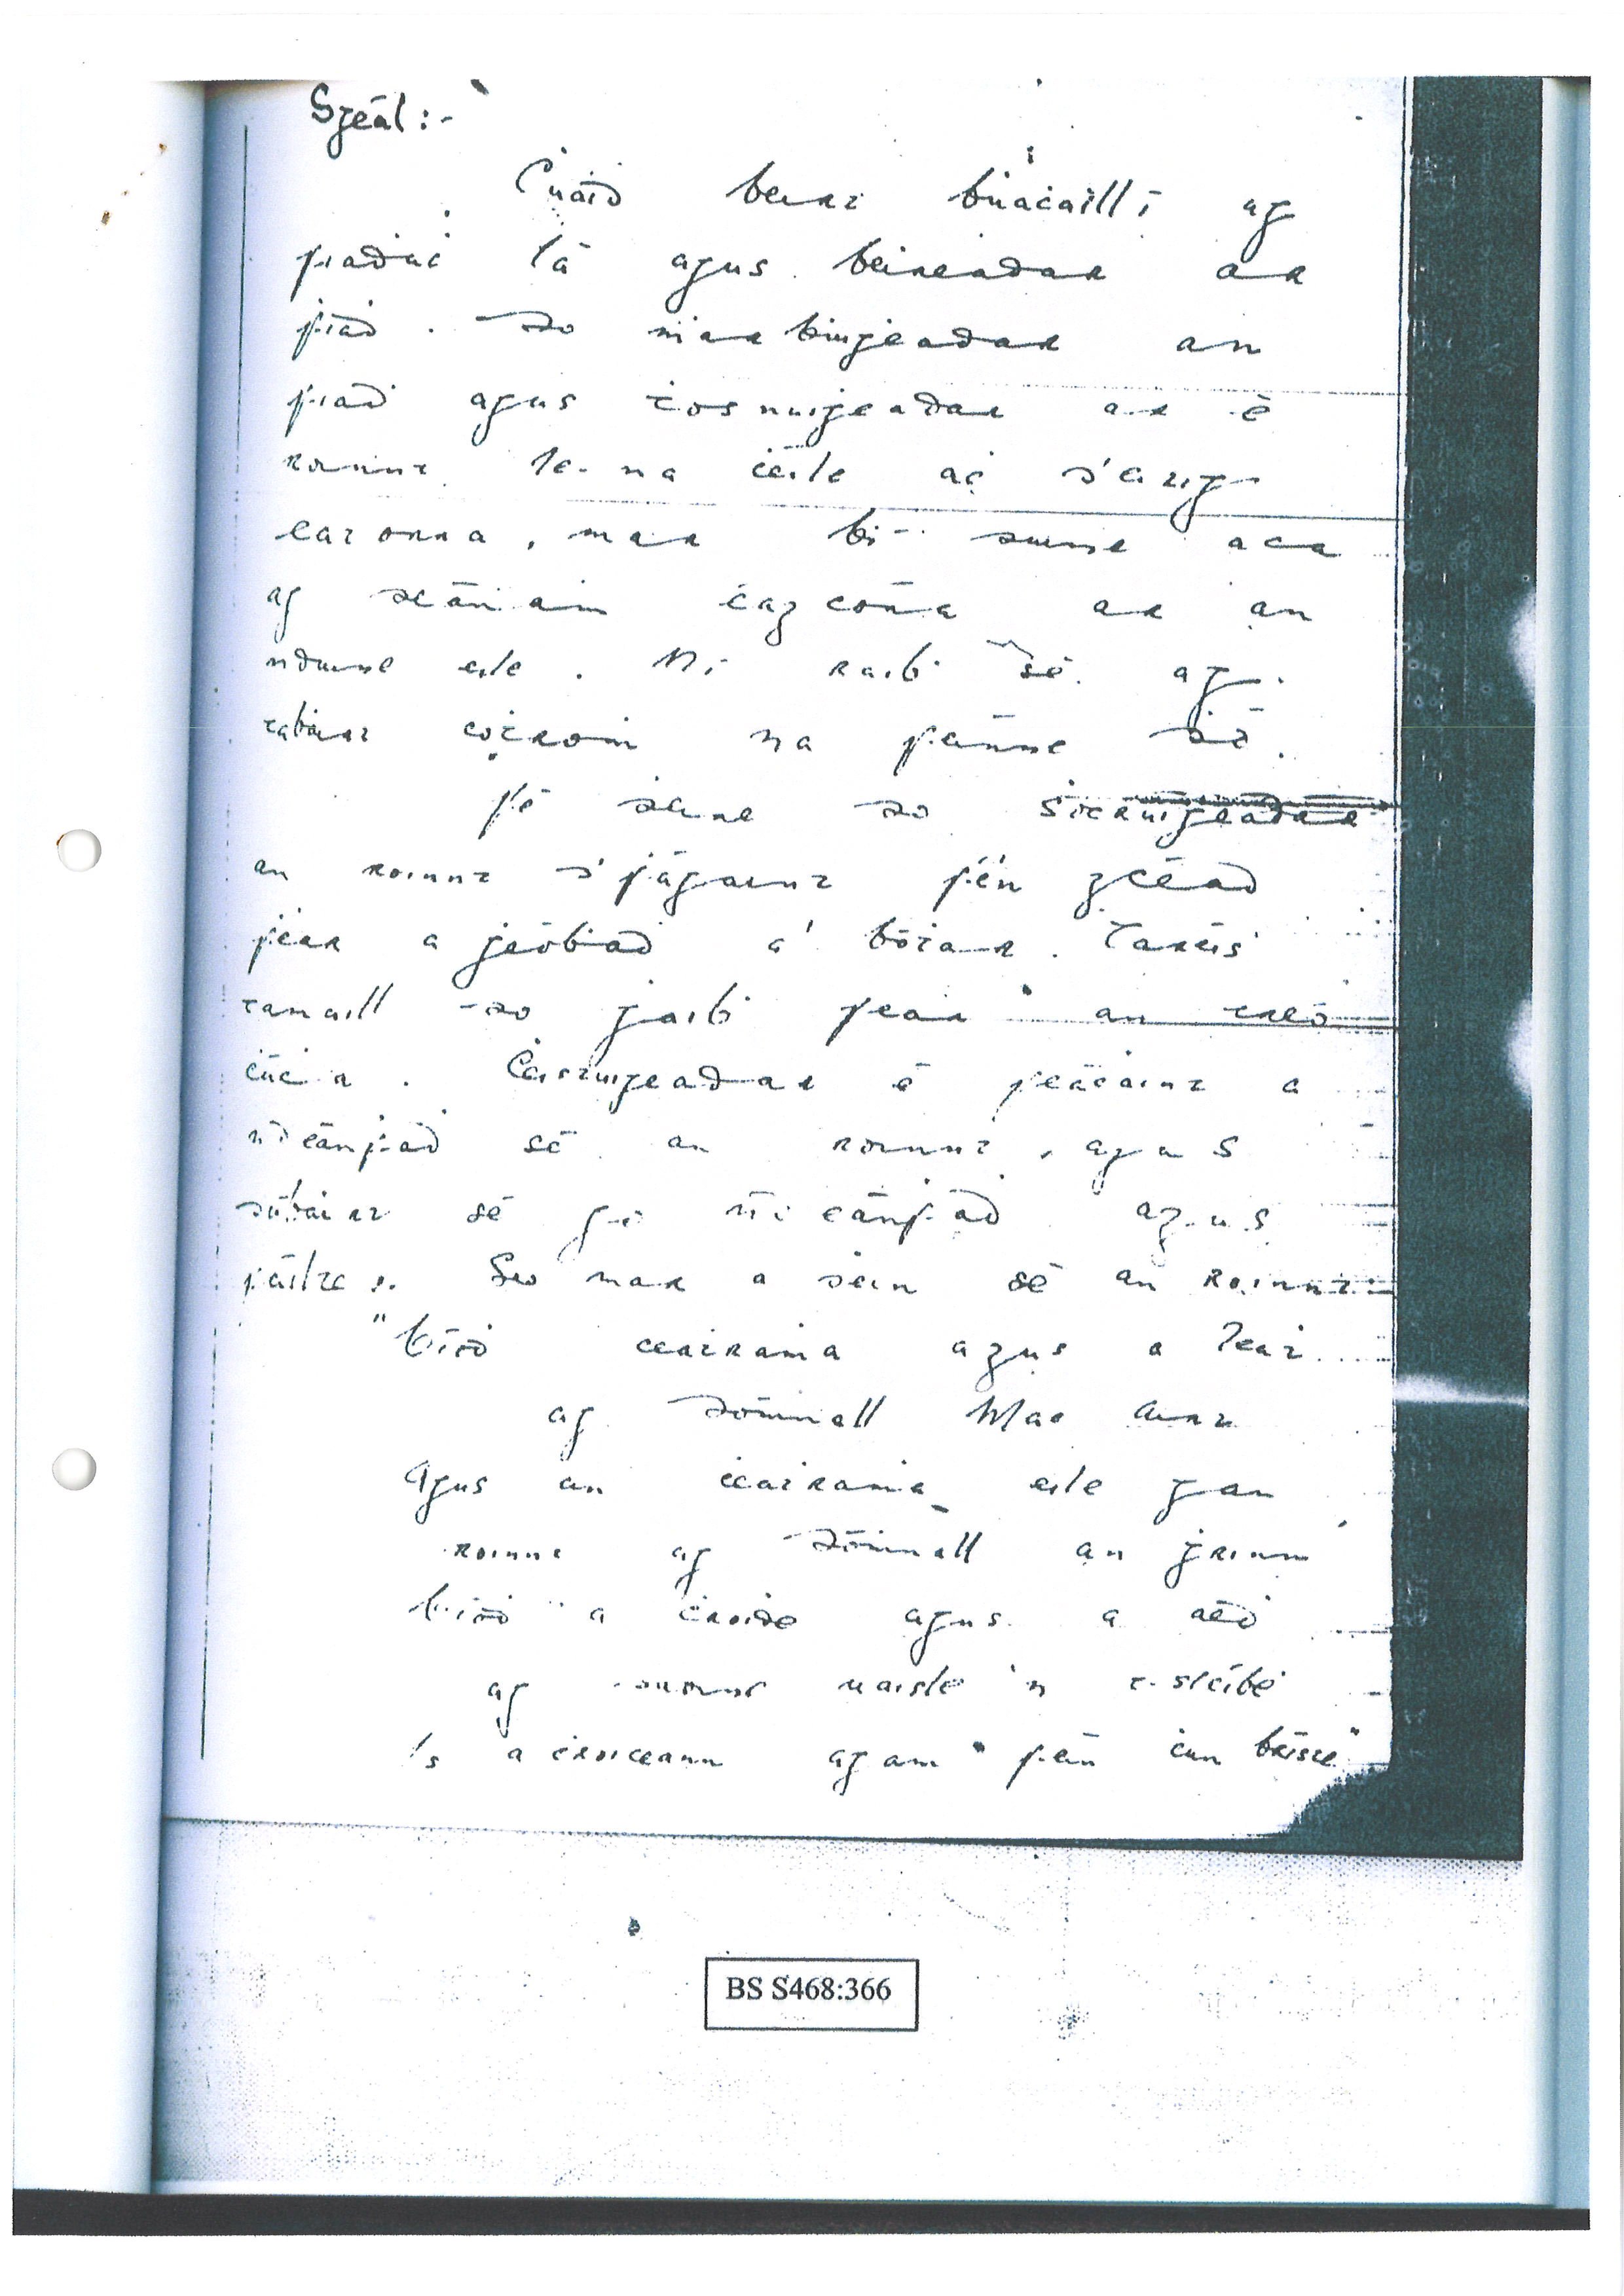 Sgéal:-
Ċuaiḋ beirt ḃuaċaillí ag
fiaḋaċ lá agus beireadar ar
fiaḋ. Do ṁarḃuiġeadar an
fiaḋ agus tosnuiġeadar ar é
roinnt le na ċéile aċ d'éiriġ
eatorra, mar bí duine aca
ag déanaiṁ éagcóra ar an
nduine eile. Ní raiḃ sé ag
taḃairt coṫrom na féinne dó.
Fé ḋeire do ṡocruiġeadar
an roinnt d'fágaint fé'n gcéad
ḟear a ġeoḃaḋ a' bóṫar. Taréis
tamaill do ġaiḃ fear an treó
ċúċa. Ċeistuiġeadar é féaċaint a
ndéanfaḋ sé an roinnt, agus
duḃairt sé go ndéanfaḋ agus
fáilte. Seo mar a ḋein sé an roinnt:-
"Bíoḋ ceaṫraṁa agus a leaṫ
ag Doṁnall Mac Airt
Agus an ċeaṫraṁa eile gan
roinnt ag Doṁnall an ġrinn
Bíoḋ a ċroiḋe agus a aeḋ
ag uaisle 'n t-sléiḃe
Is a ċroiceann agam féin ċun bróige"
BS S468:366